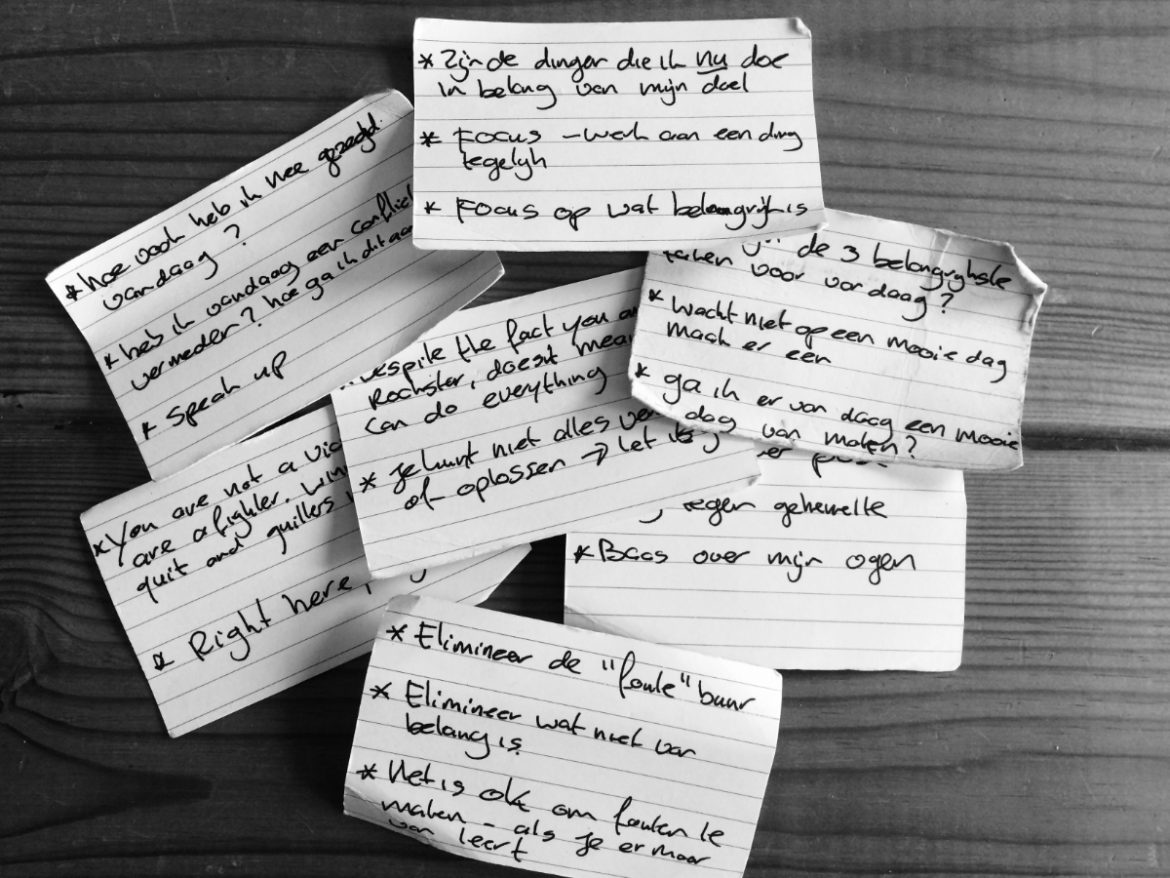 * Zijn de dingen die ik nu doe
in belang van mijn doel
* Focus - werk aan een ding
tegelijk
* Focus op wat belangrijk is
* hoe vaak heb ik nee gezegd
vandaag ?
* heb ik vandaag een conflict
vermeden? hoe ga ik dit
* Speak up
de 3 belangrijkste
taken voor vandaag ?
* Wacht niet op een mooie dag
maak er een
* ga ik er vandaag een mooie
dag van maken?
Despite the fact you
Rockster, doesnt mean
can do everything
* je kunt niet alles
of oplossen → let it
* You are not a
are a fighter.
quit and quitters
* Right here,
tegen gehemelte
* Baas over mijn ogen
* Elimineer de "foute" buur
* Elimineer wat niet van
belang is
* Het is oke om fouten te
maken - als je er maar
van leert